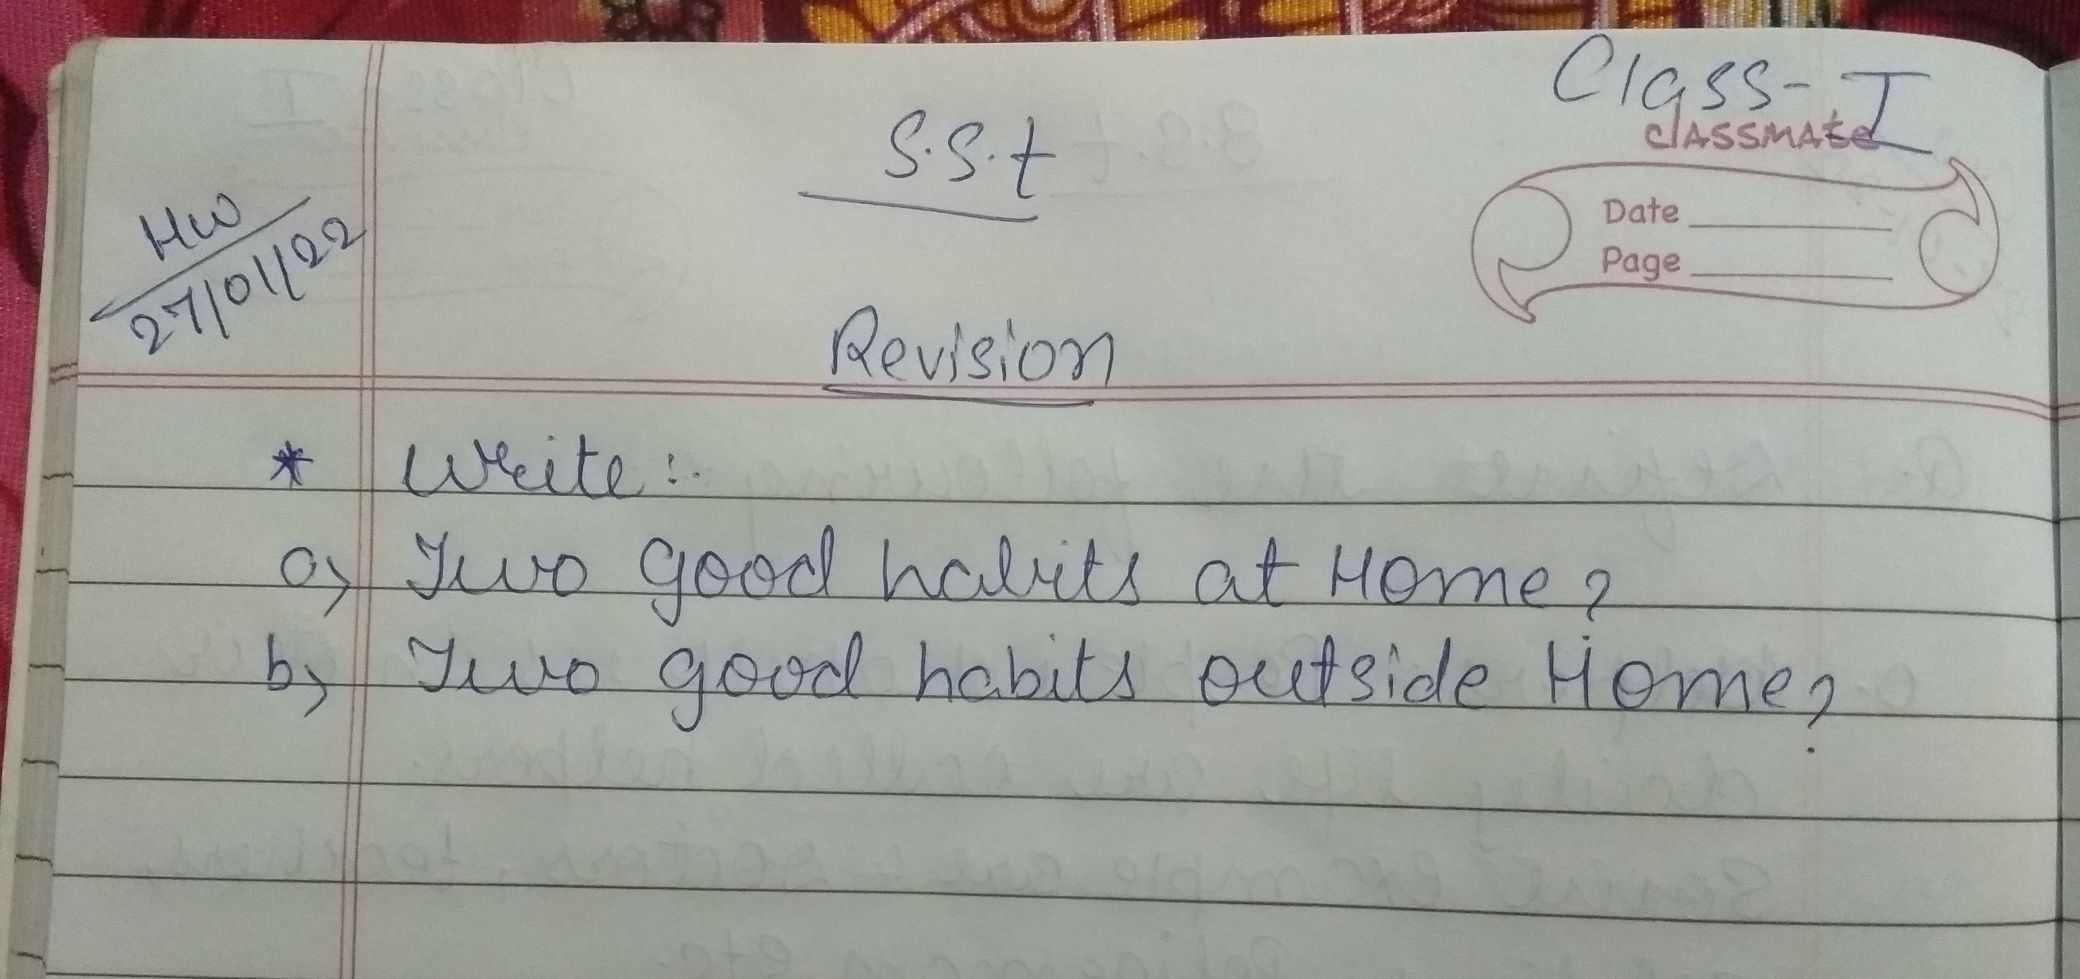 Class-I
classmate
S.S.t
Date
Page
HW
27/01/22
Revision
* Write:-
a) Two good habits at Home?
b) Two good habits outside Home?